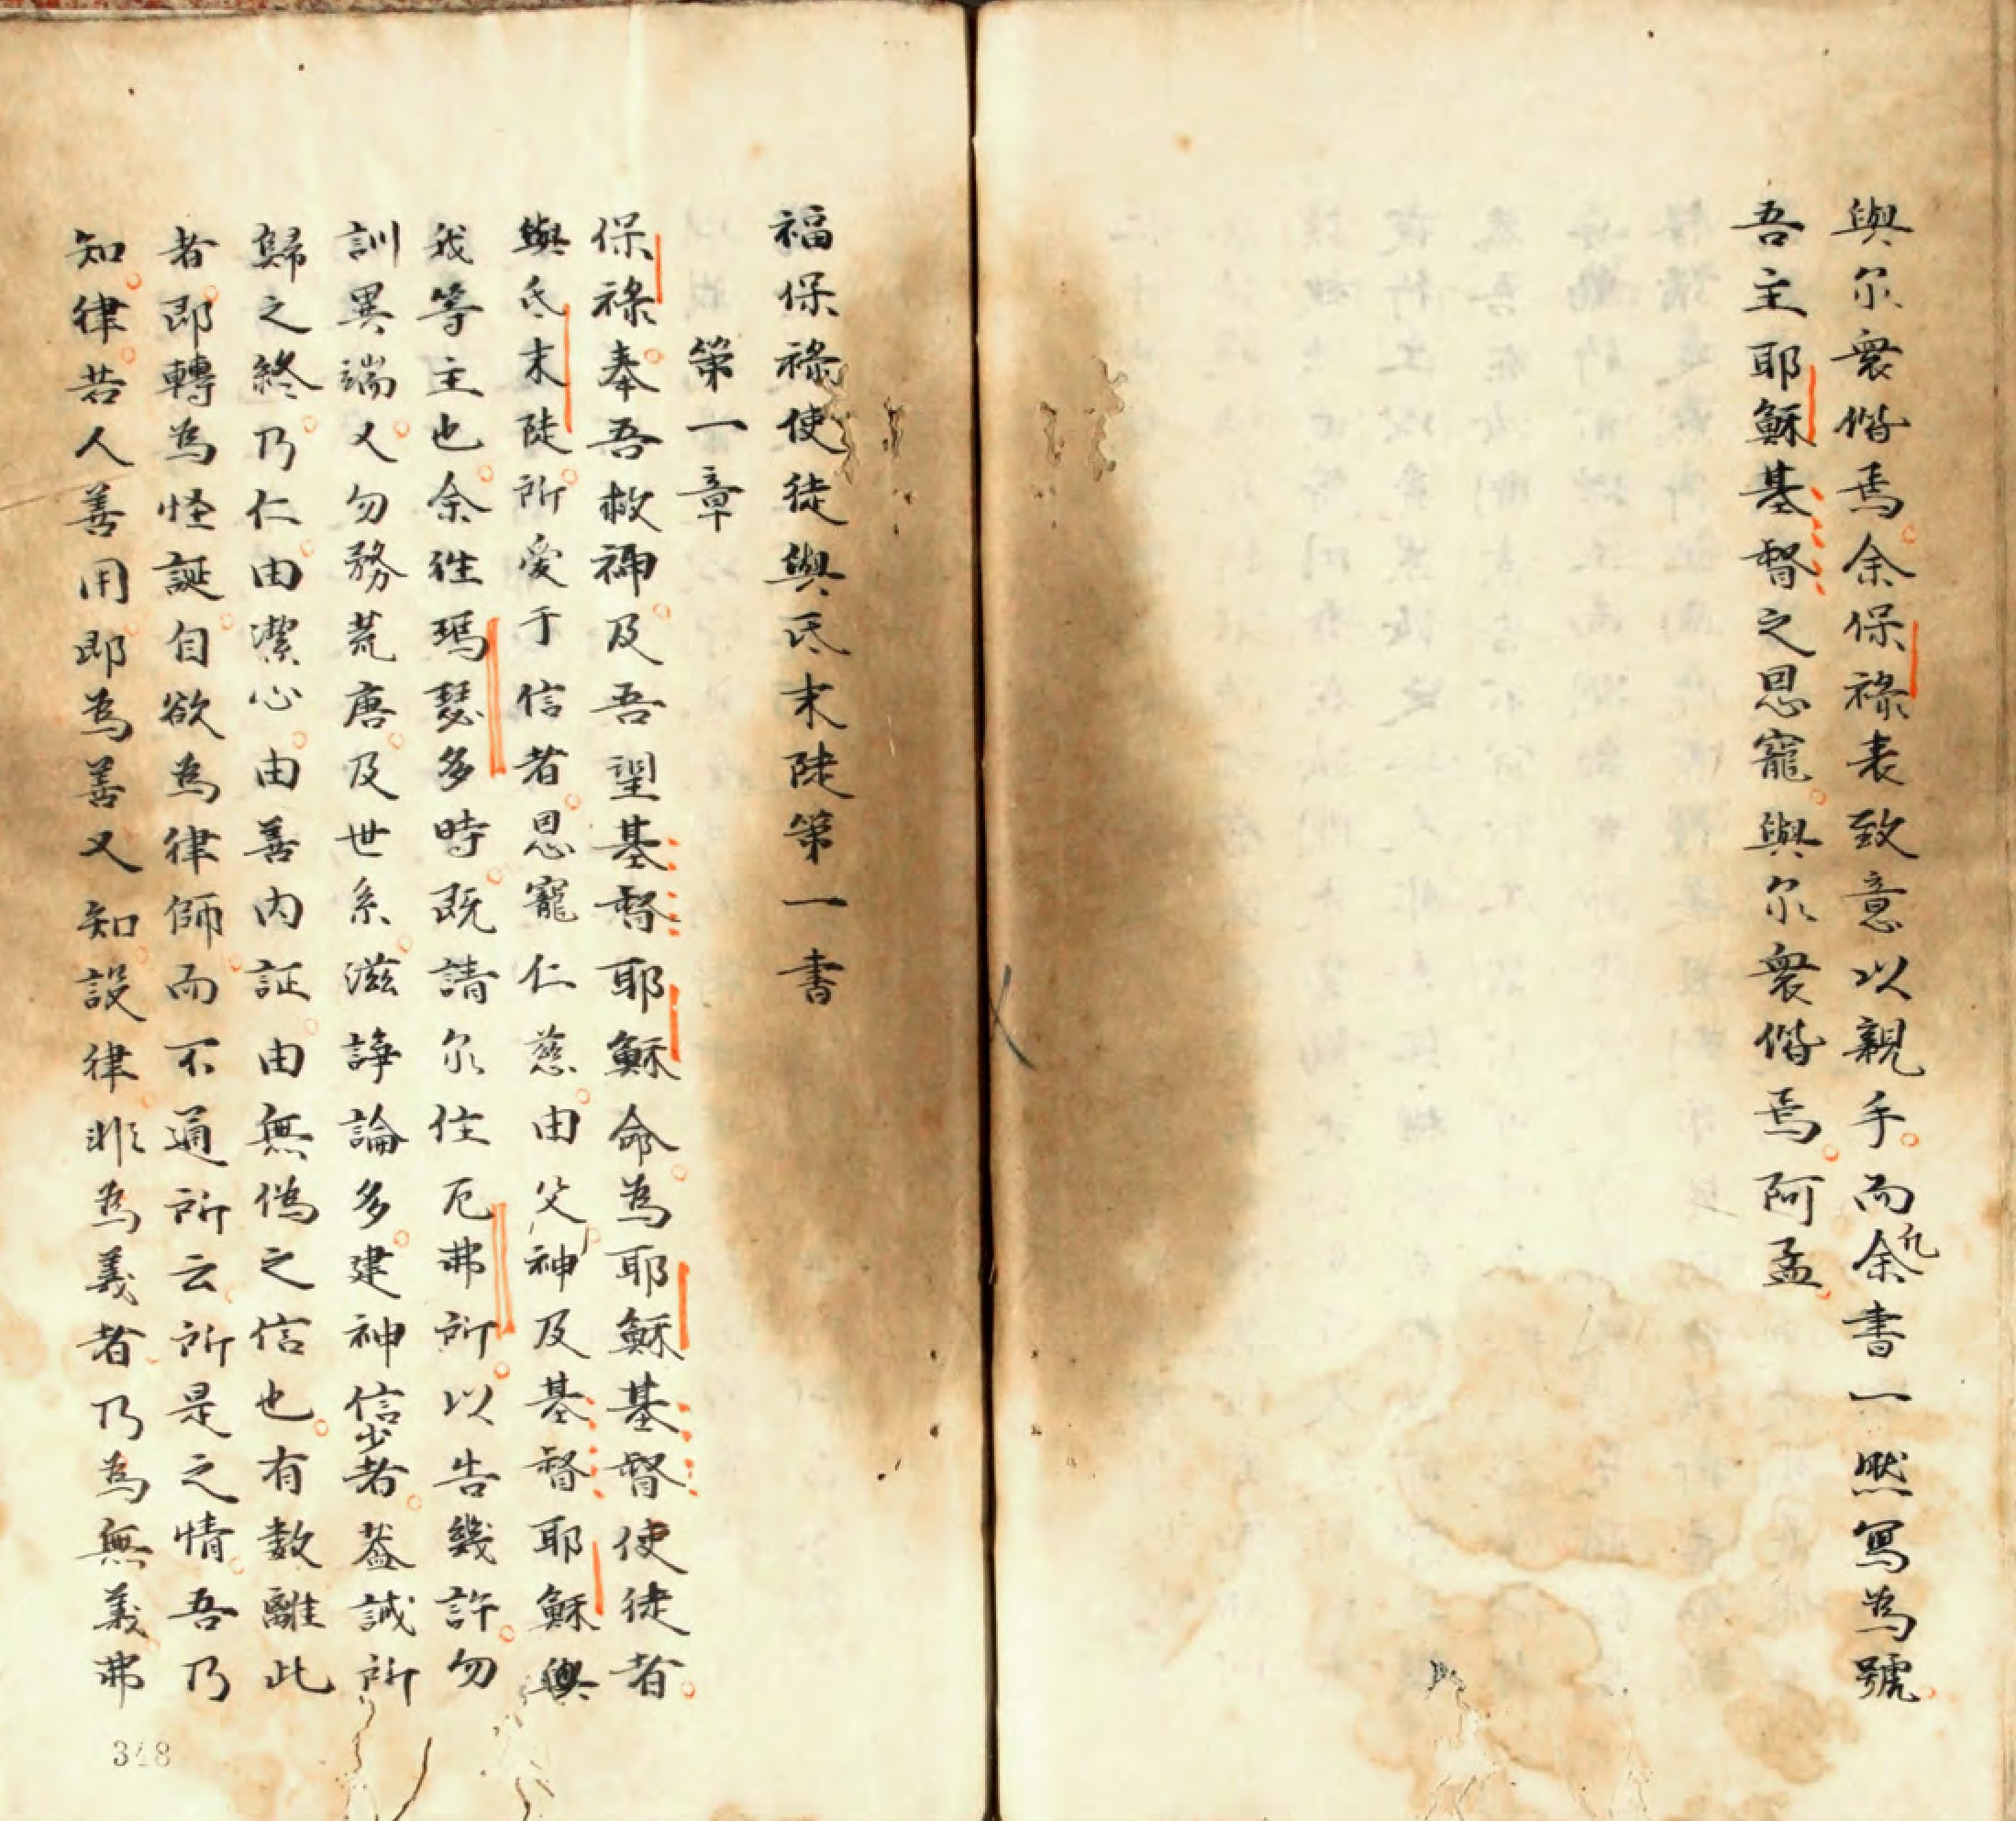 與尔衆偕焉余保祿表致意以親手而凢余書一然寫為號
吾主耶穌基督之恩寵與尔衆偕焉阿孟
福保祿使徒與氐末陡第一書
第一章
保祿奉吾救神及吾望基督耶穌命為耶穌基督使徒者
與氐末陡所愛于信者恩寵仁慈由父神及基督耶穌與
我等主也余徃瑪瑟多時既請尔住厄弗所以告幾許勿
訓異端又勿務荒唐及世系滋諍論多建神信少者葢誡所
歸之終乃仁由潔心由善內証由無偽之信也有數離此
者即轉為怪誕自欲為律師而不通所云所是之情吾乃
知律若人善用即為善又知設律非為義者乃為無義弗
348